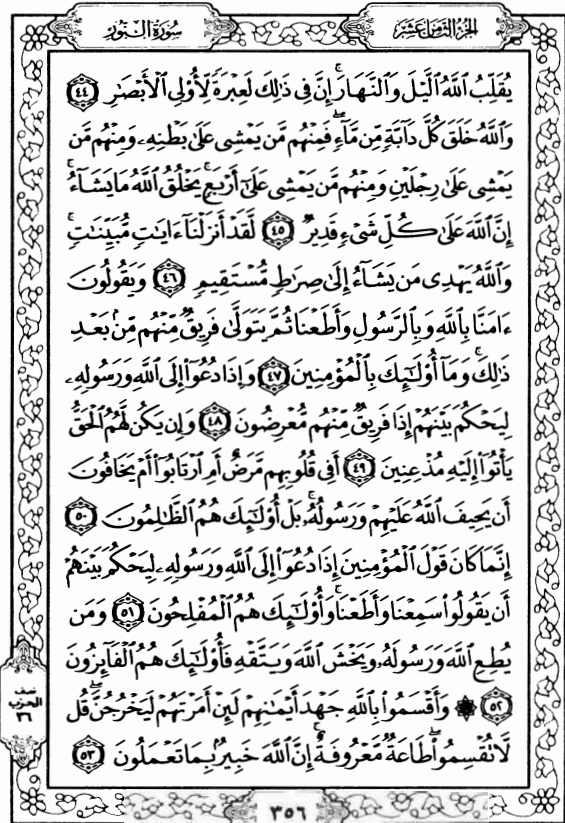 سُورَةُ النُّورِ
الجُزءُ الثَّامِنَ عَشَر
يُقَلِّبُ اللَّهُ الَّيْلَ وَالنَّهَارَ ۚ إِنَّ فِى ذَٰلِكَ لَعِبْرَةً لِّأُو۟لِى الْأَبْصَٰرِ ٤٤
وَاللَّهُ خَلَقَ كُلَّ دَآبَّةٍ مِّن مَّآءٍ ۖ فَمِنْهُم مَّن يَمْشِى عَلَىٰ بَطْنِهِۦ وَمِنْهُم مَّن
يَمْشِى عَلَىٰ رِجْلَيْنِ وَمِنْهُم مَّن يَمْشِى عَلَىٰٓ أَرْبَعٍ ۚ يَخْلُقُ اللَّهُ مَا يَشَآءُ ۚ
إِنَّ اللَّهَ عَلَىٰ كُلِّ شَىْءٍ قَدِيرٌ ٤٥ لَّقَدْ أَنزَلْنَآ ءَايَٰتٍ مُّبَيِّنَٰتٍ ۚ
وَاللَّهُ يَهْدِى مَن يَشَآءُ إِلَىٰ صِرَٰطٍ مُّسْتَقِيمٍ ٤٦ وَيَقُولُونَ
ءَامَنَّا بِاللَّهِ وَبِالرَّسُولِ وَأَطَعْنَا ثُمَّ يَتَوَلَّىٰ فَرِيقٌ مِّنْهُم مِّنۢ بَعْدِ
ذَٰلِكَ ۚ وَمَآ أُو۟لَٰٓئِكَ بِالْمُؤْمِنِينَ ٤٧ وَإِذَا دُعُوٓا۟ إِلَى اللَّهِ وَرَسُولِهِۦ
لِيَحْكُمَ بَيْنَهُمْ إِذَا فَرِيقٌ مِّنْهُم مُّعْرِضُونَ ٤٨ وَإِن يَكُن لَّهُمُ الْحَقُّ
يَأْتُوٓا۟ إِلَيْهِ مُذْعِنِينَ ٤٩ أَفِى قُلُوبِهِم مَّرَضٌ أَمِ ارْتَابُوٓا۟ أَمْ يَخَافُونَ
أَن يَحِيفَ اللَّهُ عَلَيْهِمْ وَرَسُولُهُۥ ۚ بَلْ أُو۟لَٰٓئِكَ هُمُ الظَّٰلِمُونَ ٥٠
إِنَّمَا كَانَ قَوْلَ الْمُؤْمِنِينَ إِذَا دُعُوٓا۟ إِلَى اللَّهِ وَرَسُولِهِۦ لِيَحْكُمَ بَيْنَهُمْ
أَن يَقُولُوا۟ سَمِعْنَا وَأَطَعْنَا ۚ وَأُو۟لَٰٓئِكَ هُمُ الْمُفْلِحُونَ ٥١ وَمَن
يُطِعِ اللَّهَ وَرَسُولَهُۥ وَيَخْشَ اللَّهَ وَيَتَّقْهِ فَأُو۟لَٰٓئِكَ هُمُ الْفَآئِزُونَ
٥٢ ۞ وَأَقْسَمُوا۟ بِاللَّهِ جَهْدَ أَيْمَٰنِهِمْ لَئِنْ أَمَرْتَهُمْ لَيَخْرُجُنَّ ۖ قُل
لَّا تُقْسِمُوا۟ ۖ طَاعَةٌ مَّعْرُوفَةٌ ۚ إِنَّ اللَّهَ خَبِيرٌۢ بِمَا تَعْمَلُونَ ٥٣
نصف
الحزب
٣٦
٣٥٦